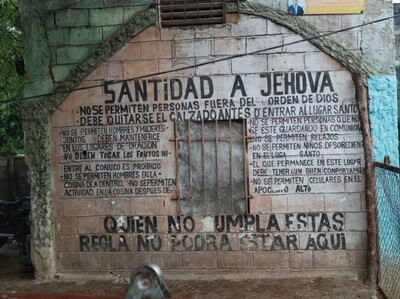 SANTIDAD A JEHOVA
NO SE PERMITEN PERSONAS FUERA DEL ORDEN DE DIOS
DEBE QUITARSE EL CALZADO ANTES D'ENTRAR AL LUGAR SANTO
NO SE PERMITEN HOMBRES Y MUJERES
JUNTOS DEBEN MANTENERCE
EN LOS LUGARES DE ORACION
NO DEBEN TOCAR LOS FRUTOS NI
ENTRE AL CONUCO ES PROIBIDO
NO SE PERMITEN HOMBRES EN LA
COSINA DEA DENTRO - NO SEPERMITEN
ACTIVIDAD EN LA COSINA DESPUES DE
NO SE PERMITEN PERSONAS QUE NO
SE ESTE GUARDANDO EN COMUNION
NO SE PERMITEN RELAJOS
NO SE PERMITEN NIÑOS DESOBEDIENTE
EN EL LUGAR SANTO
EL QUE PERMANECE EN ESTE LUGAR
DEBE TENER UN BUEN CONPORTAMIENTO
NO SE PERMITEN CELULARES EN EL
ALTO
QUIEN NO CUMPLA ESTAS
REGLA NO PODRA ESTAR AQUI